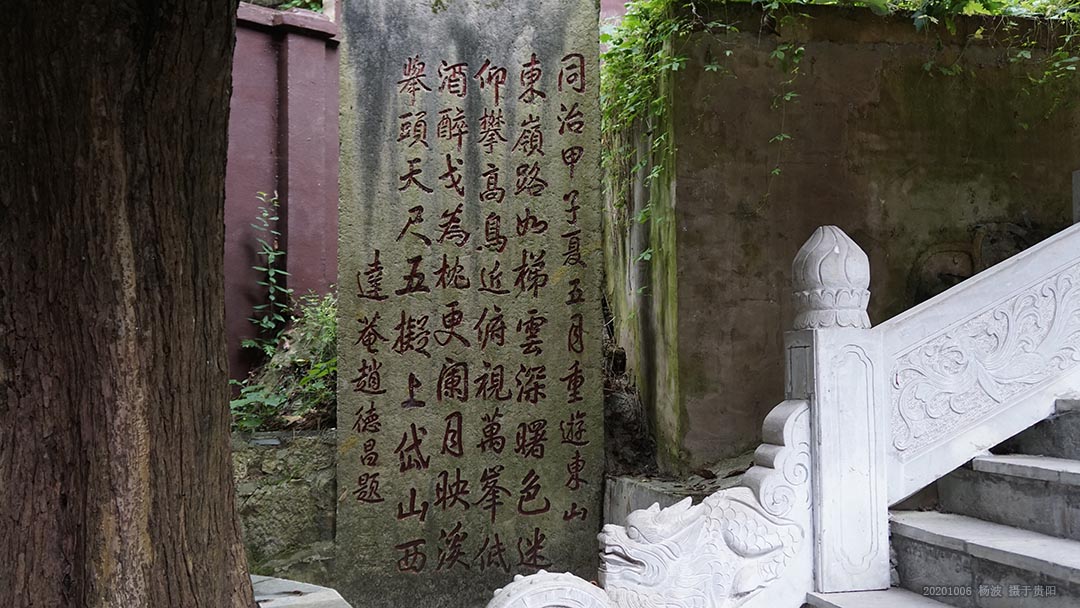 同治甲子夏五月重遊東山
東嶺路如梯雲深曙色迷
仰攀高鳥近俯視萬峯低
酒醉戈為枕更闌月映溪
舉頭天尺五擬上岱山西
達菴趙德昌題
20201006 杨波 摄于贵阳